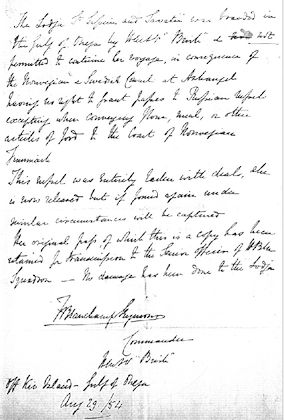 The Lodja St and was boarded in
the Gulf of Onega by HMS "Brisk" & not
permitted to continue her voyage, in consequence of
the Norwegian & Swedish Consul at Archangel
having no right to grant passes to Russian vessels
excepting when conveying flour, meal, or other
articles of food to the Coast of Norwegian
Finmark
This vessel was entirely laden with deals, she
is now released but if found again under
similar circumstances will be captured
Her original pass of which this is a copy has been
retained for transmission to the Senior Officer of HBM
Squadron — No damage has been done to the Lodja
Beauchamp Seymour
Commander
HMS Brisk
off Kio Island – Gulf of Onega
Aug 29 /54